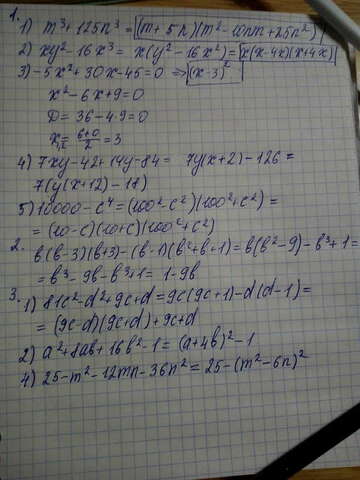 1.
1) m³ + 125n³ = (m + 5n)(m² - 10nm + 25n²)
2) xy² - 16x³ = x(y² - 16x²) = x(x - 4x)(x + 4x)
3) -5x² + 30x - 45 = 0 => (x - 3)²
x² - 6x + 9 = 0
D = 36 - 4·9 = 0
x₁,₂ = (6+0)/2 = 3
4) 7xy - 42 + 14y - 84 = 7y(x + 2) - 126 =
7(y(x + 12) - 18)
5) 10000 - c⁴ = (100² - c²)(100² + c²) =
= (10 - c)(10 + c)(100² + c²)
2. b(b - 3)(b + 3) - (b - 1)(b² + b + 1) = b(b² - 9) - b³ + 1 =
= b³ - 9b - b³ + 1 = 1 - 9b
3. 1) 81c² - d² + 9c + d = 9c(9c + 1) - d(d - 1) =
= (9c - d)(9c + d) + 9c + d
2) a² + 8ab + 16b² - 1 = (a + 4b)² - 1
4) 25 - m² - 12mn - 36n² = 25 - (m² - 6n)²